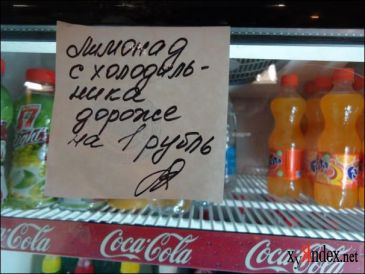 Лимонад
с холодиль-
ника
дороже
на 1 рубль
Fanta
Coca-Cola Coca-Cola Coca-Cola
XyAndex.net